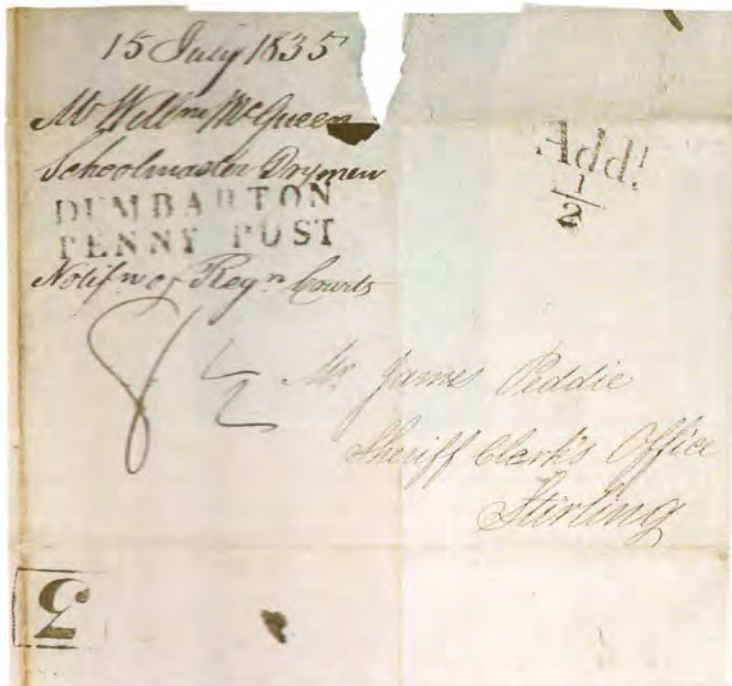 15 July 1835
Mr Willm McQueen
Schoolmaster Drymen
DUMBARTON
PENNY POST
Notifn of Regn Courts
Add!
1/2
8 1/2
Mr James Peddie
Sheriff Clerk's Office
Stirling